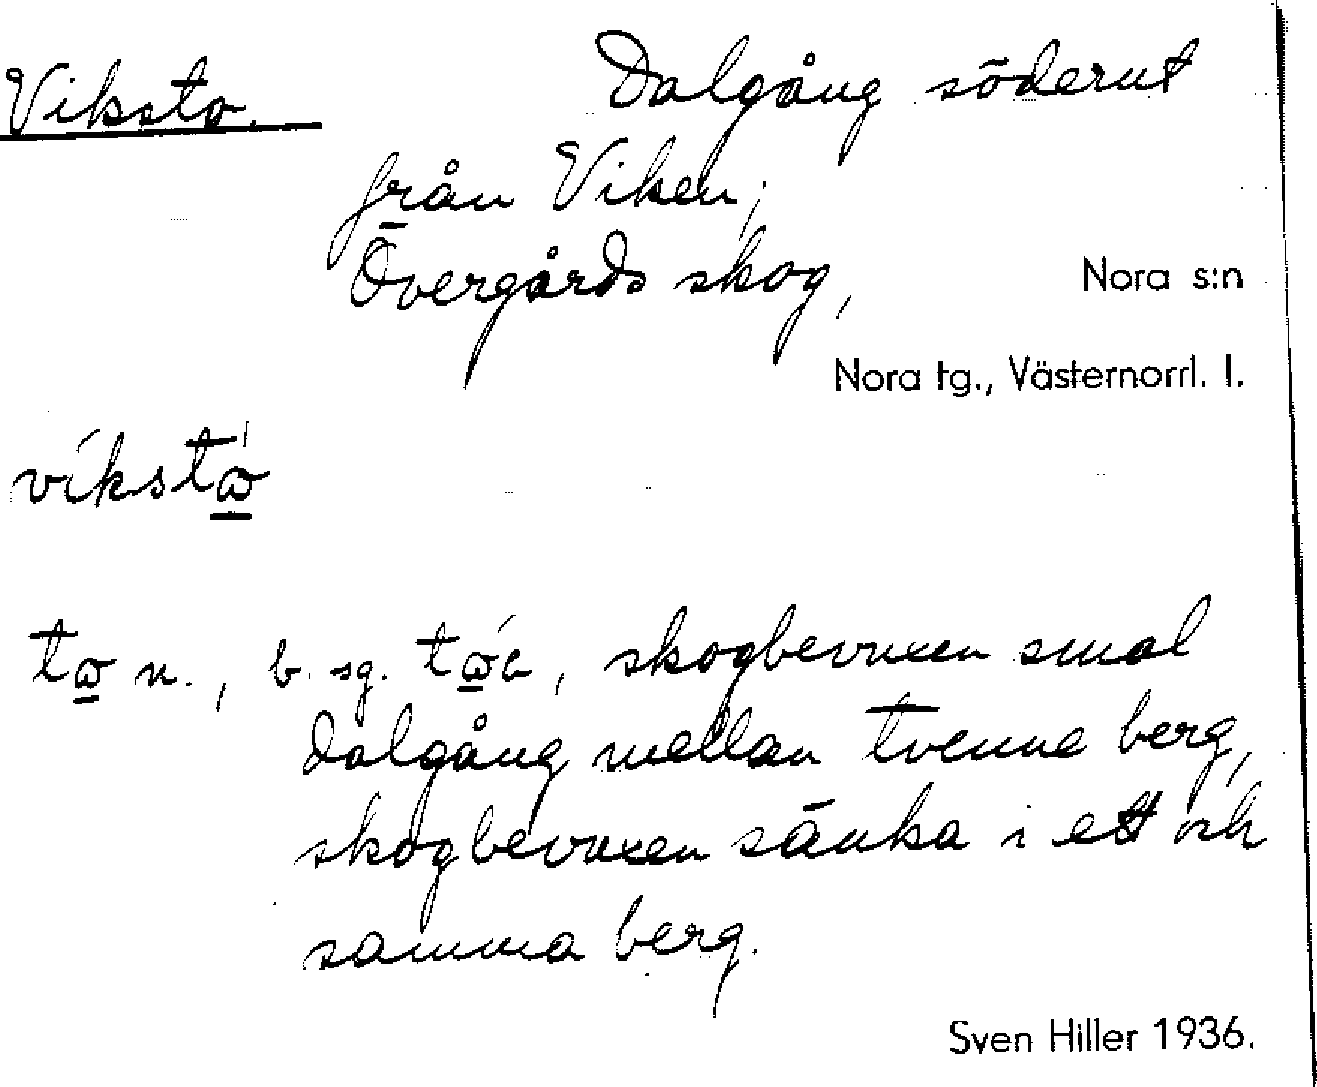 Viksto. Dalgång söderut
från Viken,
Övergårds skog, Nora s:n
Nora tg., Västernorrl. l.
vikstω̲
tω̲ n., b. sg. tώ̲a, skogbevuxen smal
dalgång mellan tvenne berg,
skogbevuxen sänka i ett och
samma berg.
Sven Hiller 1936.